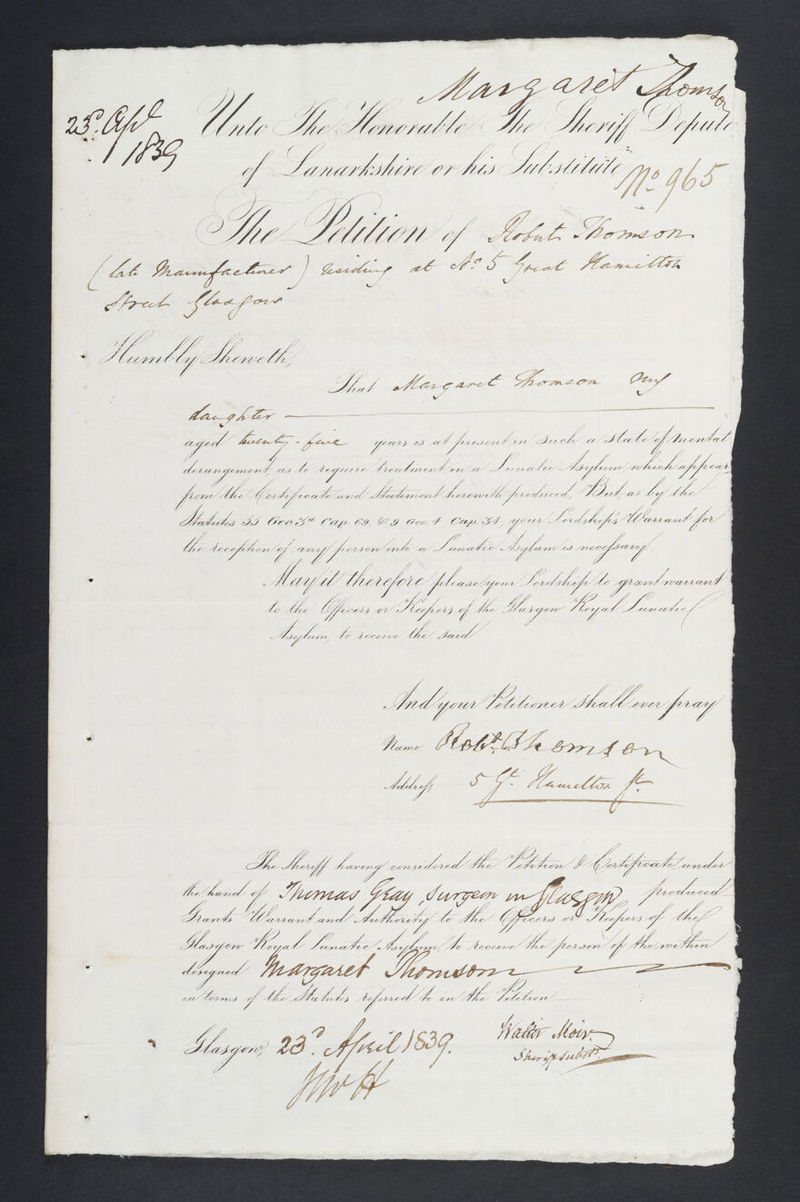 Margaret Thomson
23d. Apl
1839
Unto The Honorable The Sheriff Depute
of Lanarkshire or his Substitute
No 965
The Petition of Robert Thomson
(late Manufacturer) residing at No 5 Great Hamilton
Street Glasgow
Humbly Sheweth,
That Margaret Thomson my
daughter
aged twenty-five years is at present in such a state of mental
derangement, as to require treatment in a Lunatic Asylum, which appears
from the Certificate and Statement herewith produced, But as by the
Statutes 55 Geo 3d Cap 69 & 9 Geo. 4 Cap 34, your Lordship's Warrant for
the reception of any person into a Lunatic Asylum is necessary
May it therefore please your Lordship to grant warrant
to the Officers or Keepers of the Glasgow Royal Lunatic
Asylum, to receive the said
And your Petitioner shall ever pray
Name Robt. Thomson
Address 5 Gt. Hamilton St.
The Sheriff having considered the Petition & Certificate, under
the hand of Thomas Gray, Surgeon in Glasgow produced
Grants Warrant and Authority to the Officers or Keepers of the
Glasgow Royal Lunatic Asylum, to receive the person of the within
designed Margaret Thomson
in terms of the Statutes referred to in the Petition
Glasgow, 23d. April 1839.
Walter Moir.
Sheriff Substt.